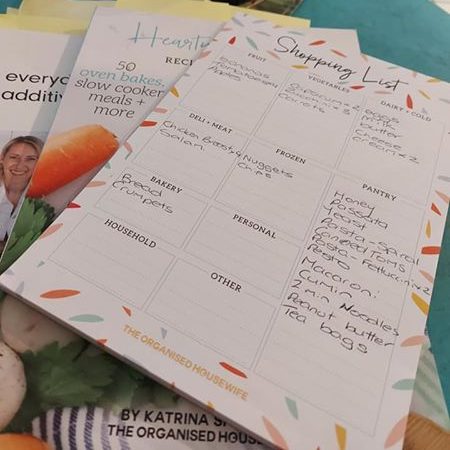 everyday
additiv
Hearty
RECI
50
oven bakes,
slow cooker
meals +
more
Shopping List
FRUIT
Bananas
Apples
VEGETABLES
Capsicum x 2
Carrots x 3
DAIRY + COLD
eggs
Milk
butter
Cheese
cream x 2
DELI + MEAT
Chicken Breast x4
FROZEN
Nuggets
Chips
PANTRY
Honey
Passata
Yeast
Pasta - Spiral
Canned Toms
Pasta - Fettuccini x2
Pesto
Macaroni
Cumin
2 min Noodles
Peanut butter
Tea bags
BAKERY
Bread
Crumpets
PERSONAL
HOUSEHOLD
OTHER
THE ORGANISED HOUSEWIFE
BY KATRINA S
THE ORGANISED HOUSE